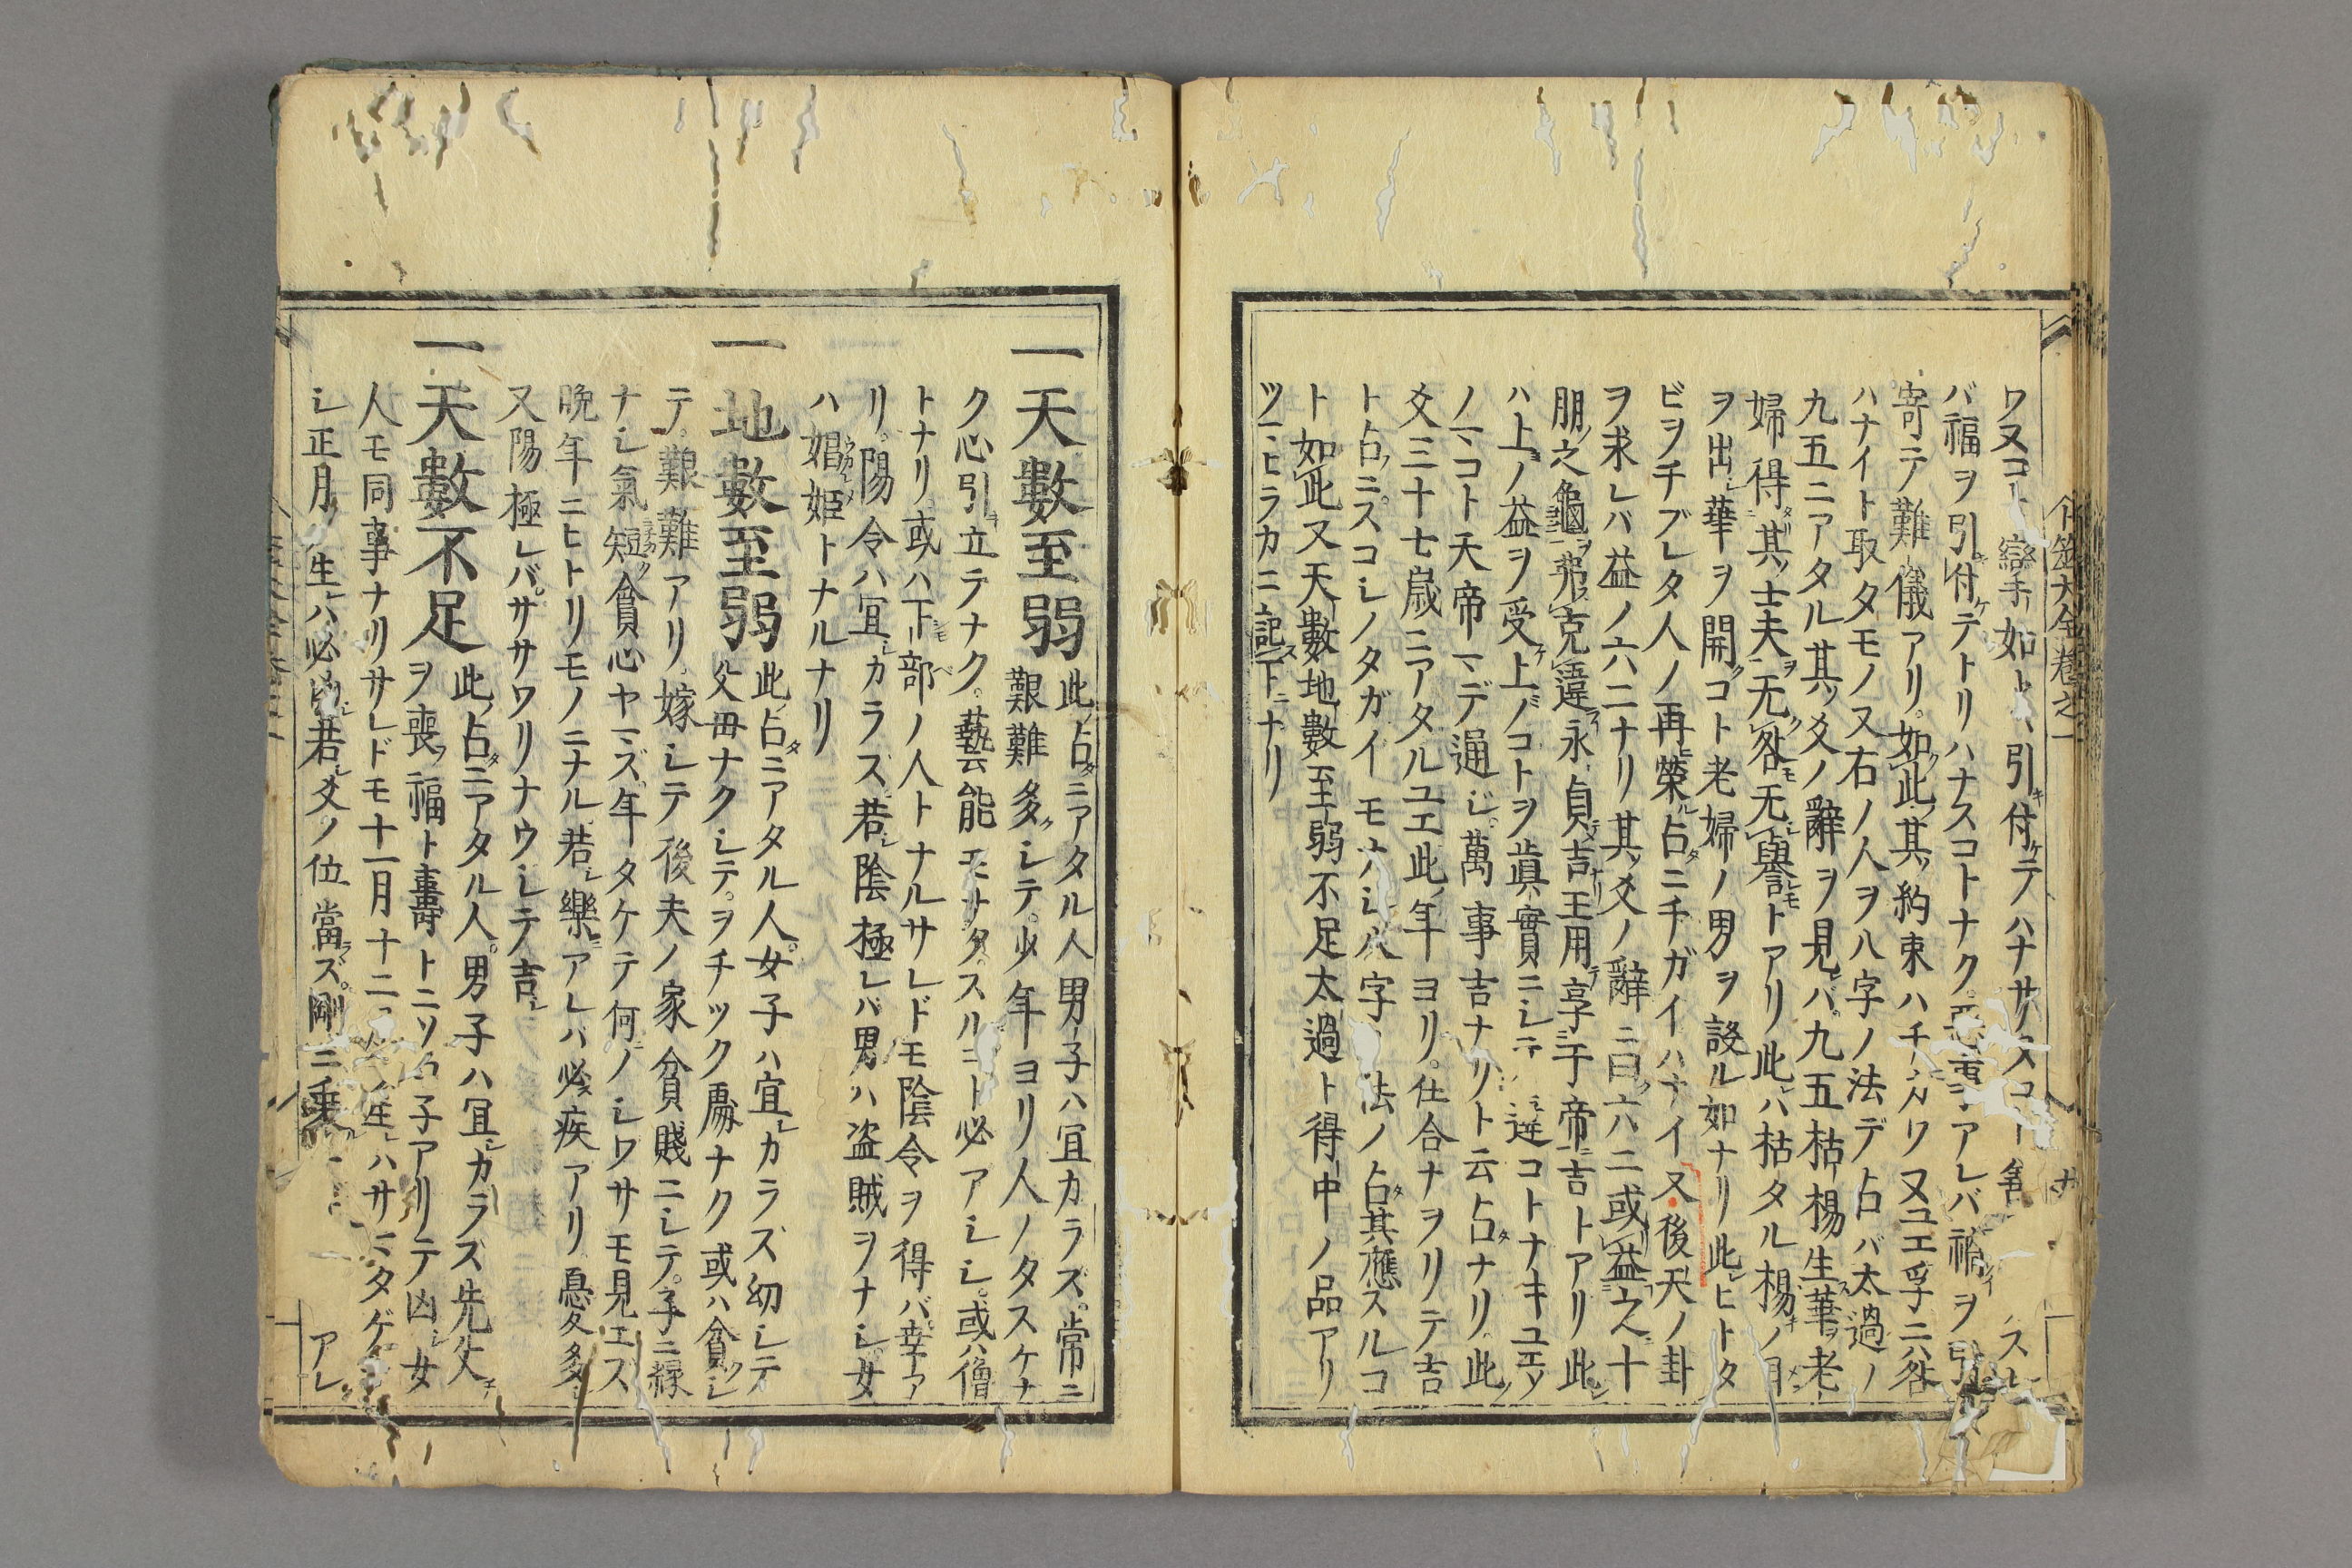 卜筮大全巻之一
孿如ト引付テハナサヌコ
バ福ヲ引付テトリハナスコトナク。アレバ禍ヲ引
寄テ難儀アリ。如此其約束ハチカワヌユエ孚ニ六咎
ハナイト取タモノ又右ノ人ヲ八字ノ法デ占バ太過ノ
九五ニアタル其爻ノ辭ヲ見バ九五枯楊生華老
婦得其士夫无咎无譽トアリ此ハ枯タル楊ノ目
ヲ出シ華ヲ開クコト老婦ノ男ヲ設ル如ナリ此ヒトタ
ビヲチブレタ人ノ再榮ル占ニチガイハナイ又後天ノ卦
ヲ求レバ益ノ六二ナリ其爻ノ辭ニ曰六二或益之十
朋之龜弗克違永貞吉王用享于帝吉トアリ此
ハ上ノ益ヲ受上ノコトヲ眞實ニシテ違コトナキユエソ
ノマコト天帝マデ通ジ。萬事吉ナリト云占ナリ此
爻三十七歳ニアタルユエ此年ヨリ。仕合ナヲリテ吉
ト占ニ。スコシノタガイモナシ八字ノ法ノ占其應スルコ
ト如此又天數地數至弱不足太過ト得中ノ品アリ
ツマヒラカニ記下ニナリ
一天數至弱 此占ニアタル人男子ハ宜カラズ。常ニ
艱難多シテ。少年ヨリ人ノタスケナ
ク心引立テナク。藝能モサタスルコト必アシシ。或ハ僧
トナリ或ハ下部ノ人トナルサレドモ陰令ヲ得バ幸ア
リ。陽令ハ宜カラズ若シ陰極レバ男ハ盗賊ヲナシ女
ハ娼姫トナルナリ
一地數至弱 此占ニアタル人。女子ハ宜カラズ幼シテ
父毌ナクシテ。ヲチツク處ナク或ハ貧シ
テ。艱難アリ。嫁シテ後夫ノ家貧賤ニシテ。子ニ縁
ナシ氣短ク貧心ヤマズ年タケテ何ノシワサモ見エズ
晩年ニヒトリモノニナル若シ樂アレバ必疾アリ憂多シ
又陽極レバ。ササワリナウシテ吉シ
一天數不足 此占ニアタル人。男子ハ宜カラズ先父
ヲ喪フ福ト壽トニツ子アリテ凶シ女
人モ同事ナリサレドモ十一月十二生ハサマタゲ
シ正月ノ生ハ必凶シ若爻ノ位當ラズ。剛ニ乗 アレ